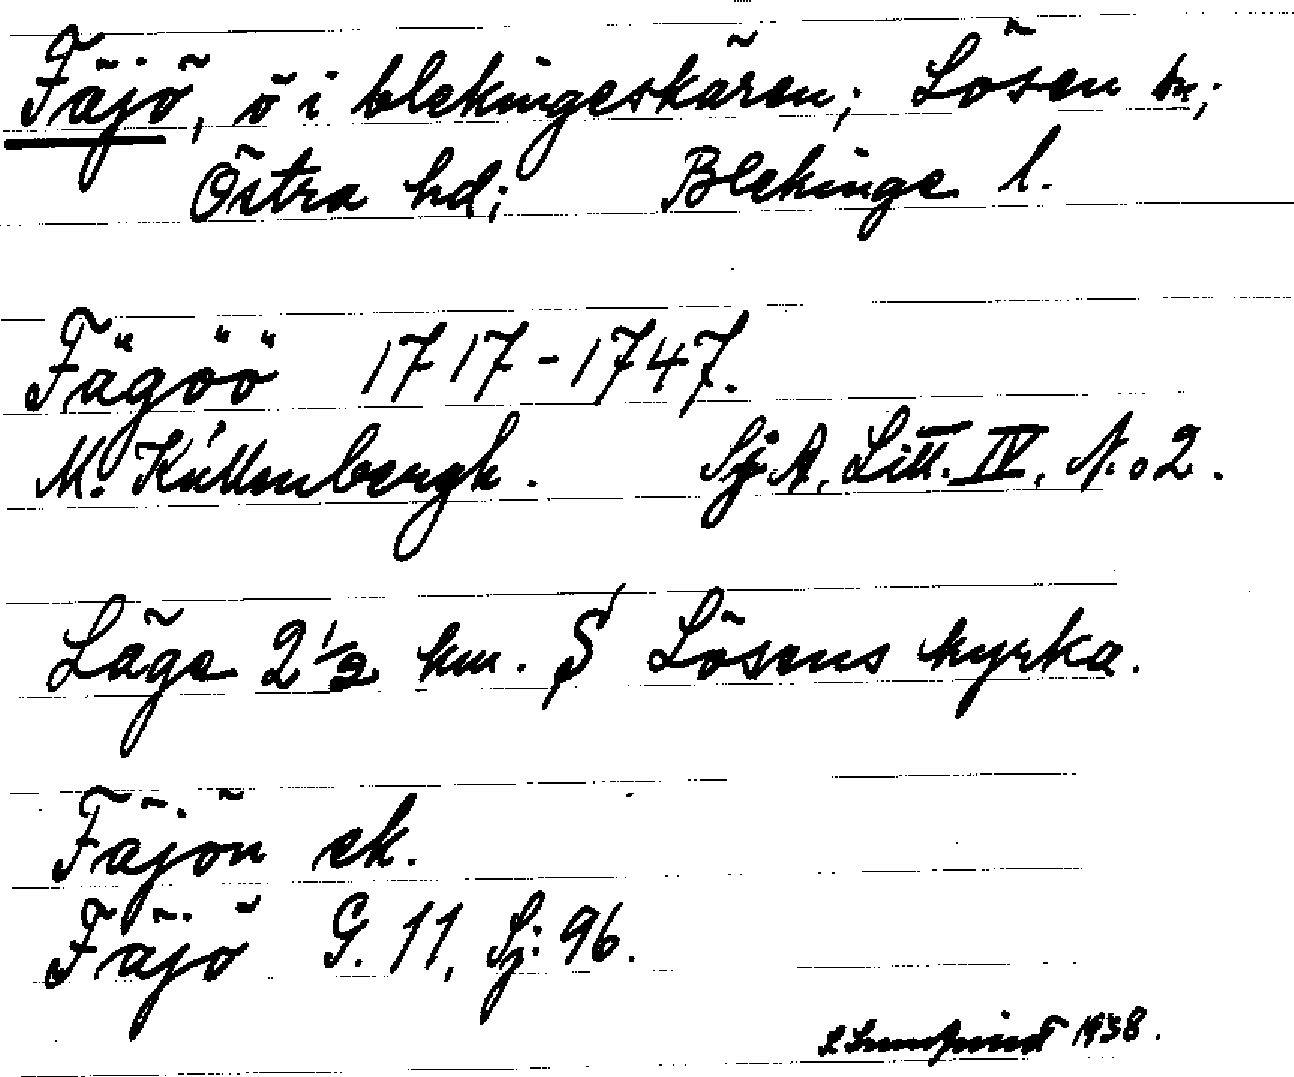 Fäjö, ö i blekingeskären; Lösen sn;
Östra hd; Blekinge l.
Fägöö 1717-1747.
M. Kullenbergh. Sj. A. Litt. IV. N.o 2.
Läge 2 1/2 km. S Lösens kyrka.
Fäjön ek.
Fäjö G. 11, Sj: 96.
1938.